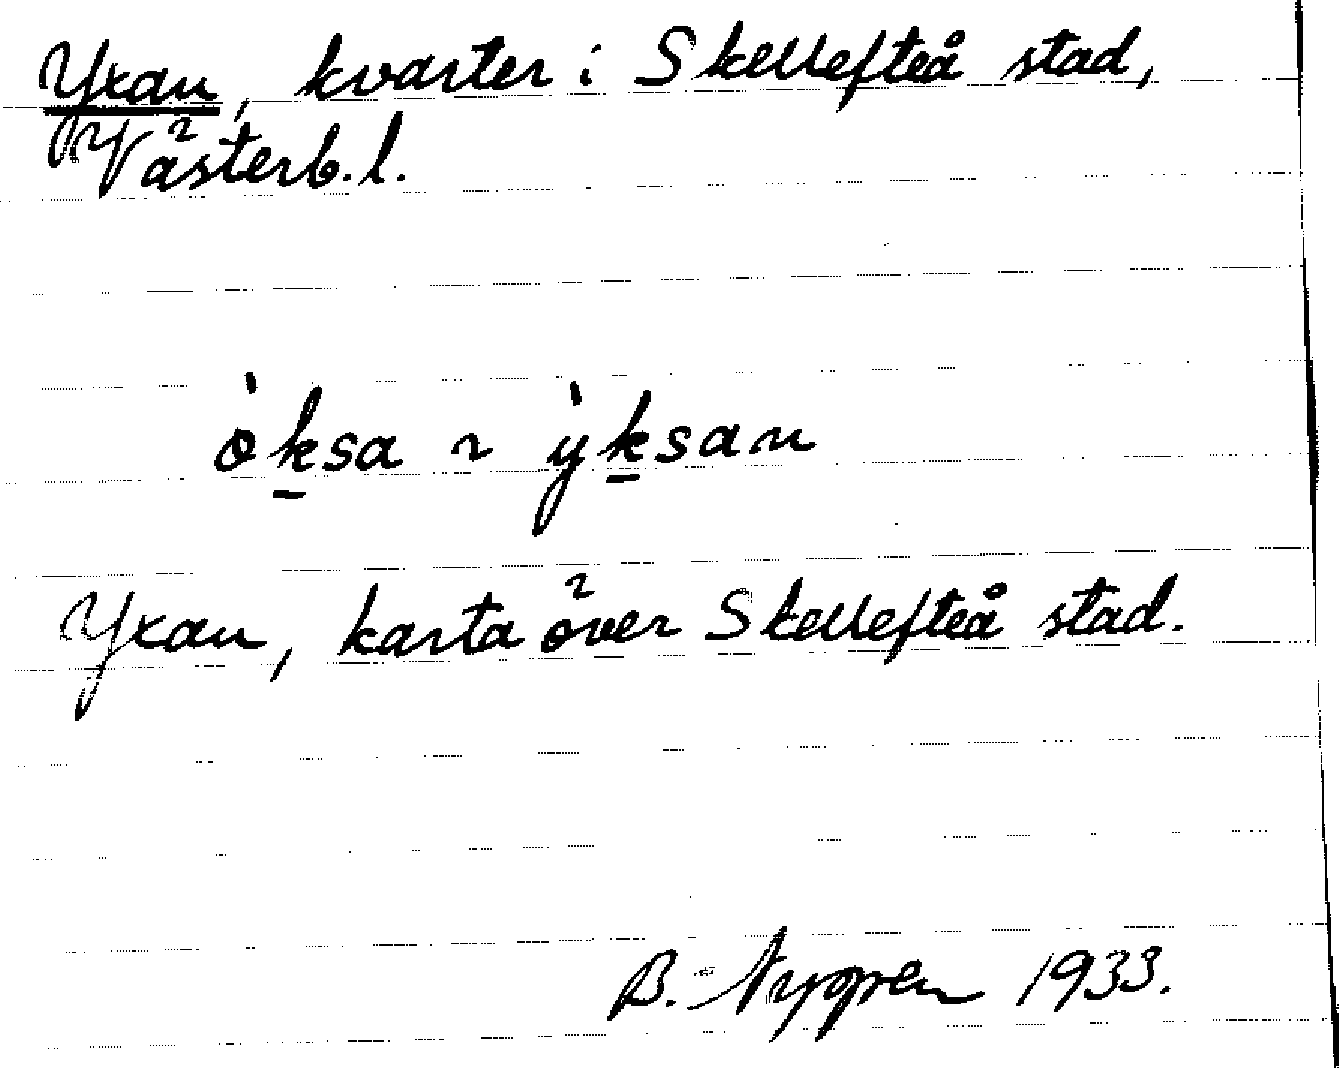 Yxan, kvarter i Skellefteå stad,
Västerb. l.
òksa ~ ỳksan
Yxan, karta över Skellefteå stad.
B. 1933.